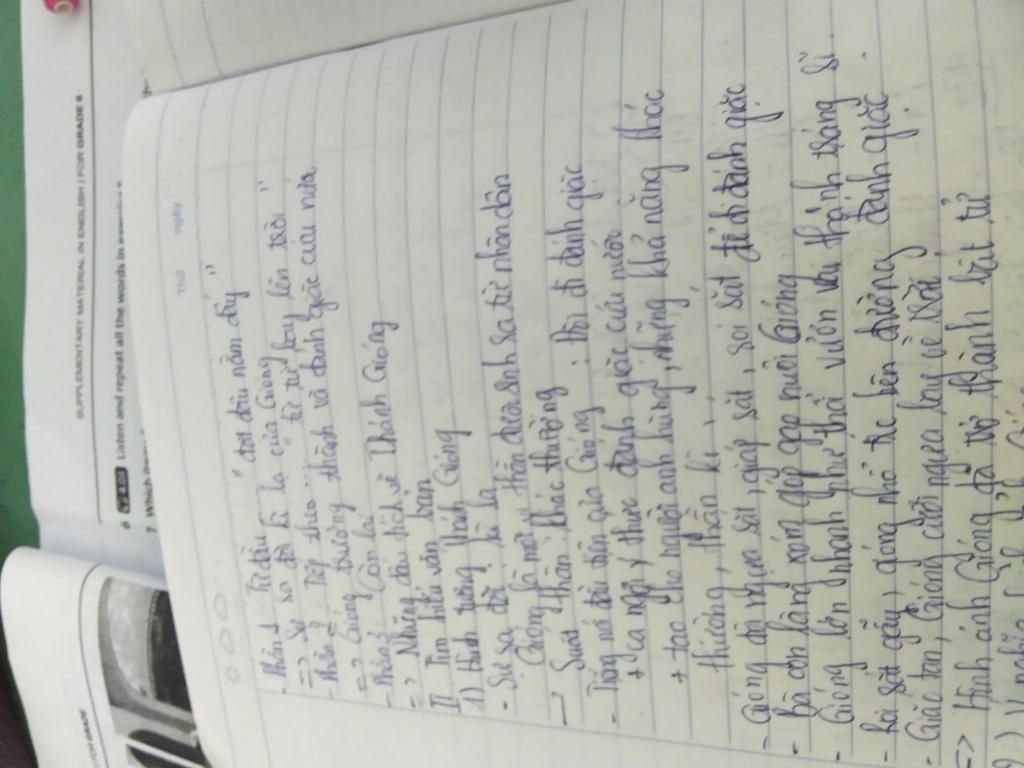 SUPPLEMENTARY MATERIAL IN ENGLISH | FOR GRADE 6
6 Listen and repeat all the words in exercise
7 Which
FOR GRADE
Thứ ngày
- Phần 1: Từ đầu " đặt đâu nằm đấy "
=> Sự ra đời kì lạ của Gióng
- Phần 2: Tiếp theo " từ từ bay lên trời "
=> Gióng trưởng thành và đánh giặc cứu nước
- Phần 3: Còn lại
=> Những dấu tích về Thánh Gióng
II Tìm hiểu văn bản
1) Hình tượng Thánh Gióng
- Sự ra đời kì lạ
Gióng là một thần
-> thân khác thường
- Tiếng nói đầu tiên của Gióng : đòi đi đánh giặc
+ ca ngợi ý thức đánh giặc cứu nước
+ tạo cho người anh hùng những khả năng khác
thường, thần kì
- Gióng đòi ngựa sắt, giáp sắt, roi sắt để đi đánh giặc
- Bà con làng xóm góp gạo nuôi Gióng
- Gióng lớn nhanh như thổi vươn vai thành tráng sĩ.
- Roi sắt gẫy, gióng nhổ tre bên đường đánh giặc.
- Giặc tan, Gióng cưỡi ngựa bay về trời.
=> Hình ảnh Gióng đã trở thành bất tử
2) Ý nghĩa